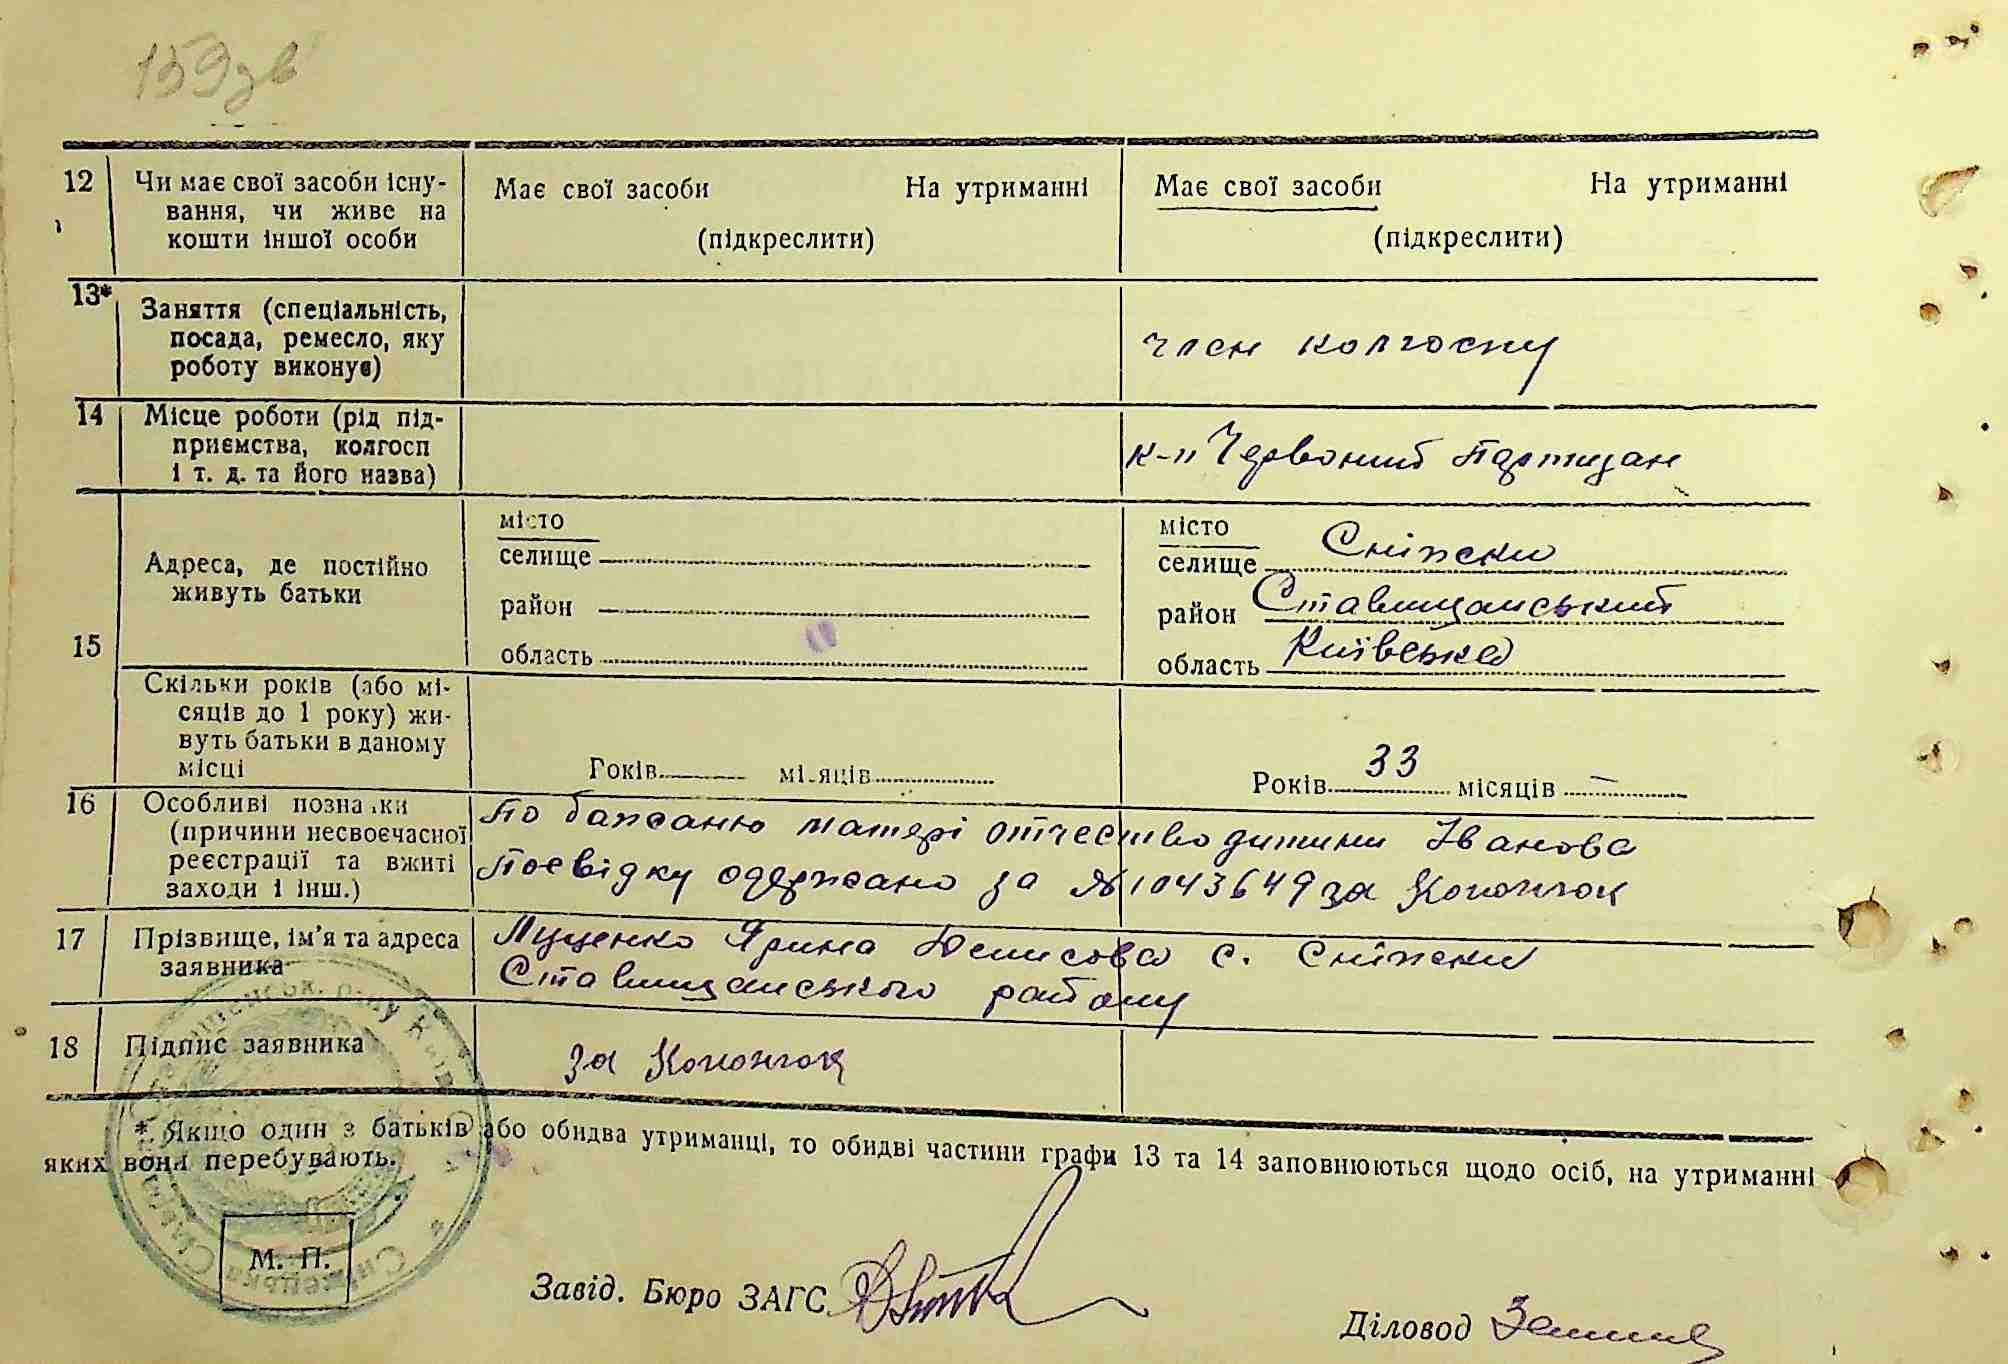 159зв
12 Чи має свої засоби існу-
вання, чи живе на
кошти іншої особи
Має свої засоби На утриманні
(підкреслити)
Має свої засоби На утриманні
(підкреслити)
13* Заняття (спеціальність,
посада, ремесло, яку
роботу виконує)
член колгоспу
14 Місце роботи (рід під-
приємства, колгосп
і т. д. та його назва)
к-п Червоний Партизан
15
Адреса, де постійно
живуть батьки
місто
селище
район
область
місто
селище Сніжки
район Ставищанський
область Київська
Скільки років (або мі-
сяців до 1 року) жи-
вуть батьки в даному
місці
Років місяців
Років 33 місяців —
16 Особливі познаки
(причини несвоєчасної
реєстрації та вжиті
заходи і інш.)
По бажаню матері отчество дитини Іванова
Посвідку одержано за № 1043649 за
17 Прізвище, ім'я та адреса
заявника
Луценко Ярина Денисова с. Сніжки
Ставищанського району
18 Підпис заявника
за
* Якщо один з батьків або обидва утриманці, то обидві частини графи 13 та 14 заповнюються щодо осіб, на утриманні
яких вони перебувають.
М. П.
Завід. Бюро ЗАГС
Діловод